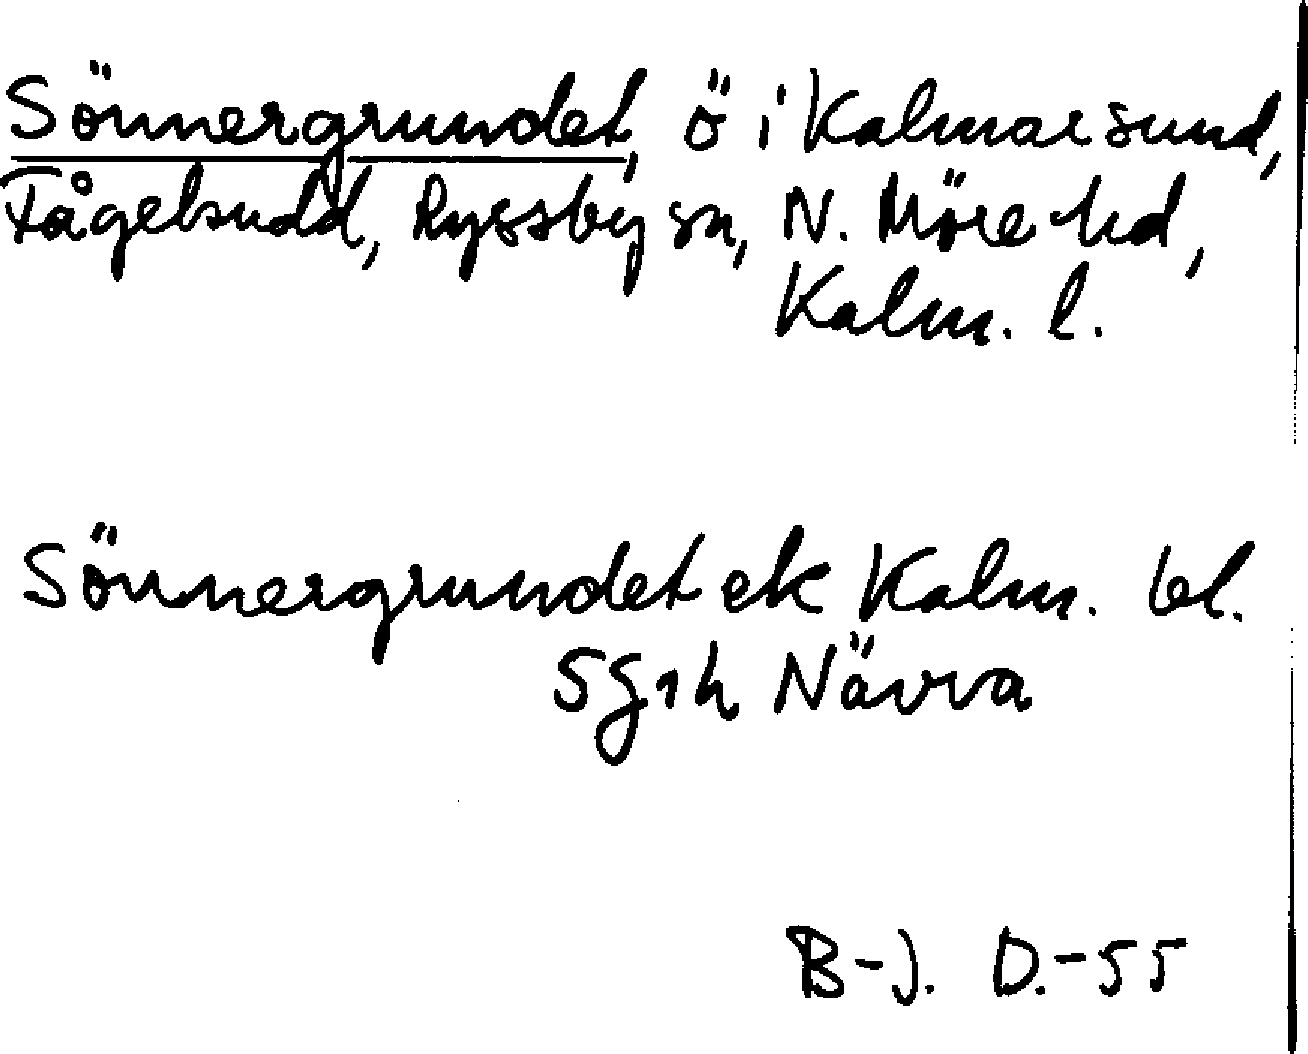 Sönnergrundet, ö i Kalmarsund,
Fågelsudd, Ryssby sn, N. Möre hd,
Kalm. l.
Sönnergrundet ek Kalm. bl.
5g1h Nävra
B-J. D.-55